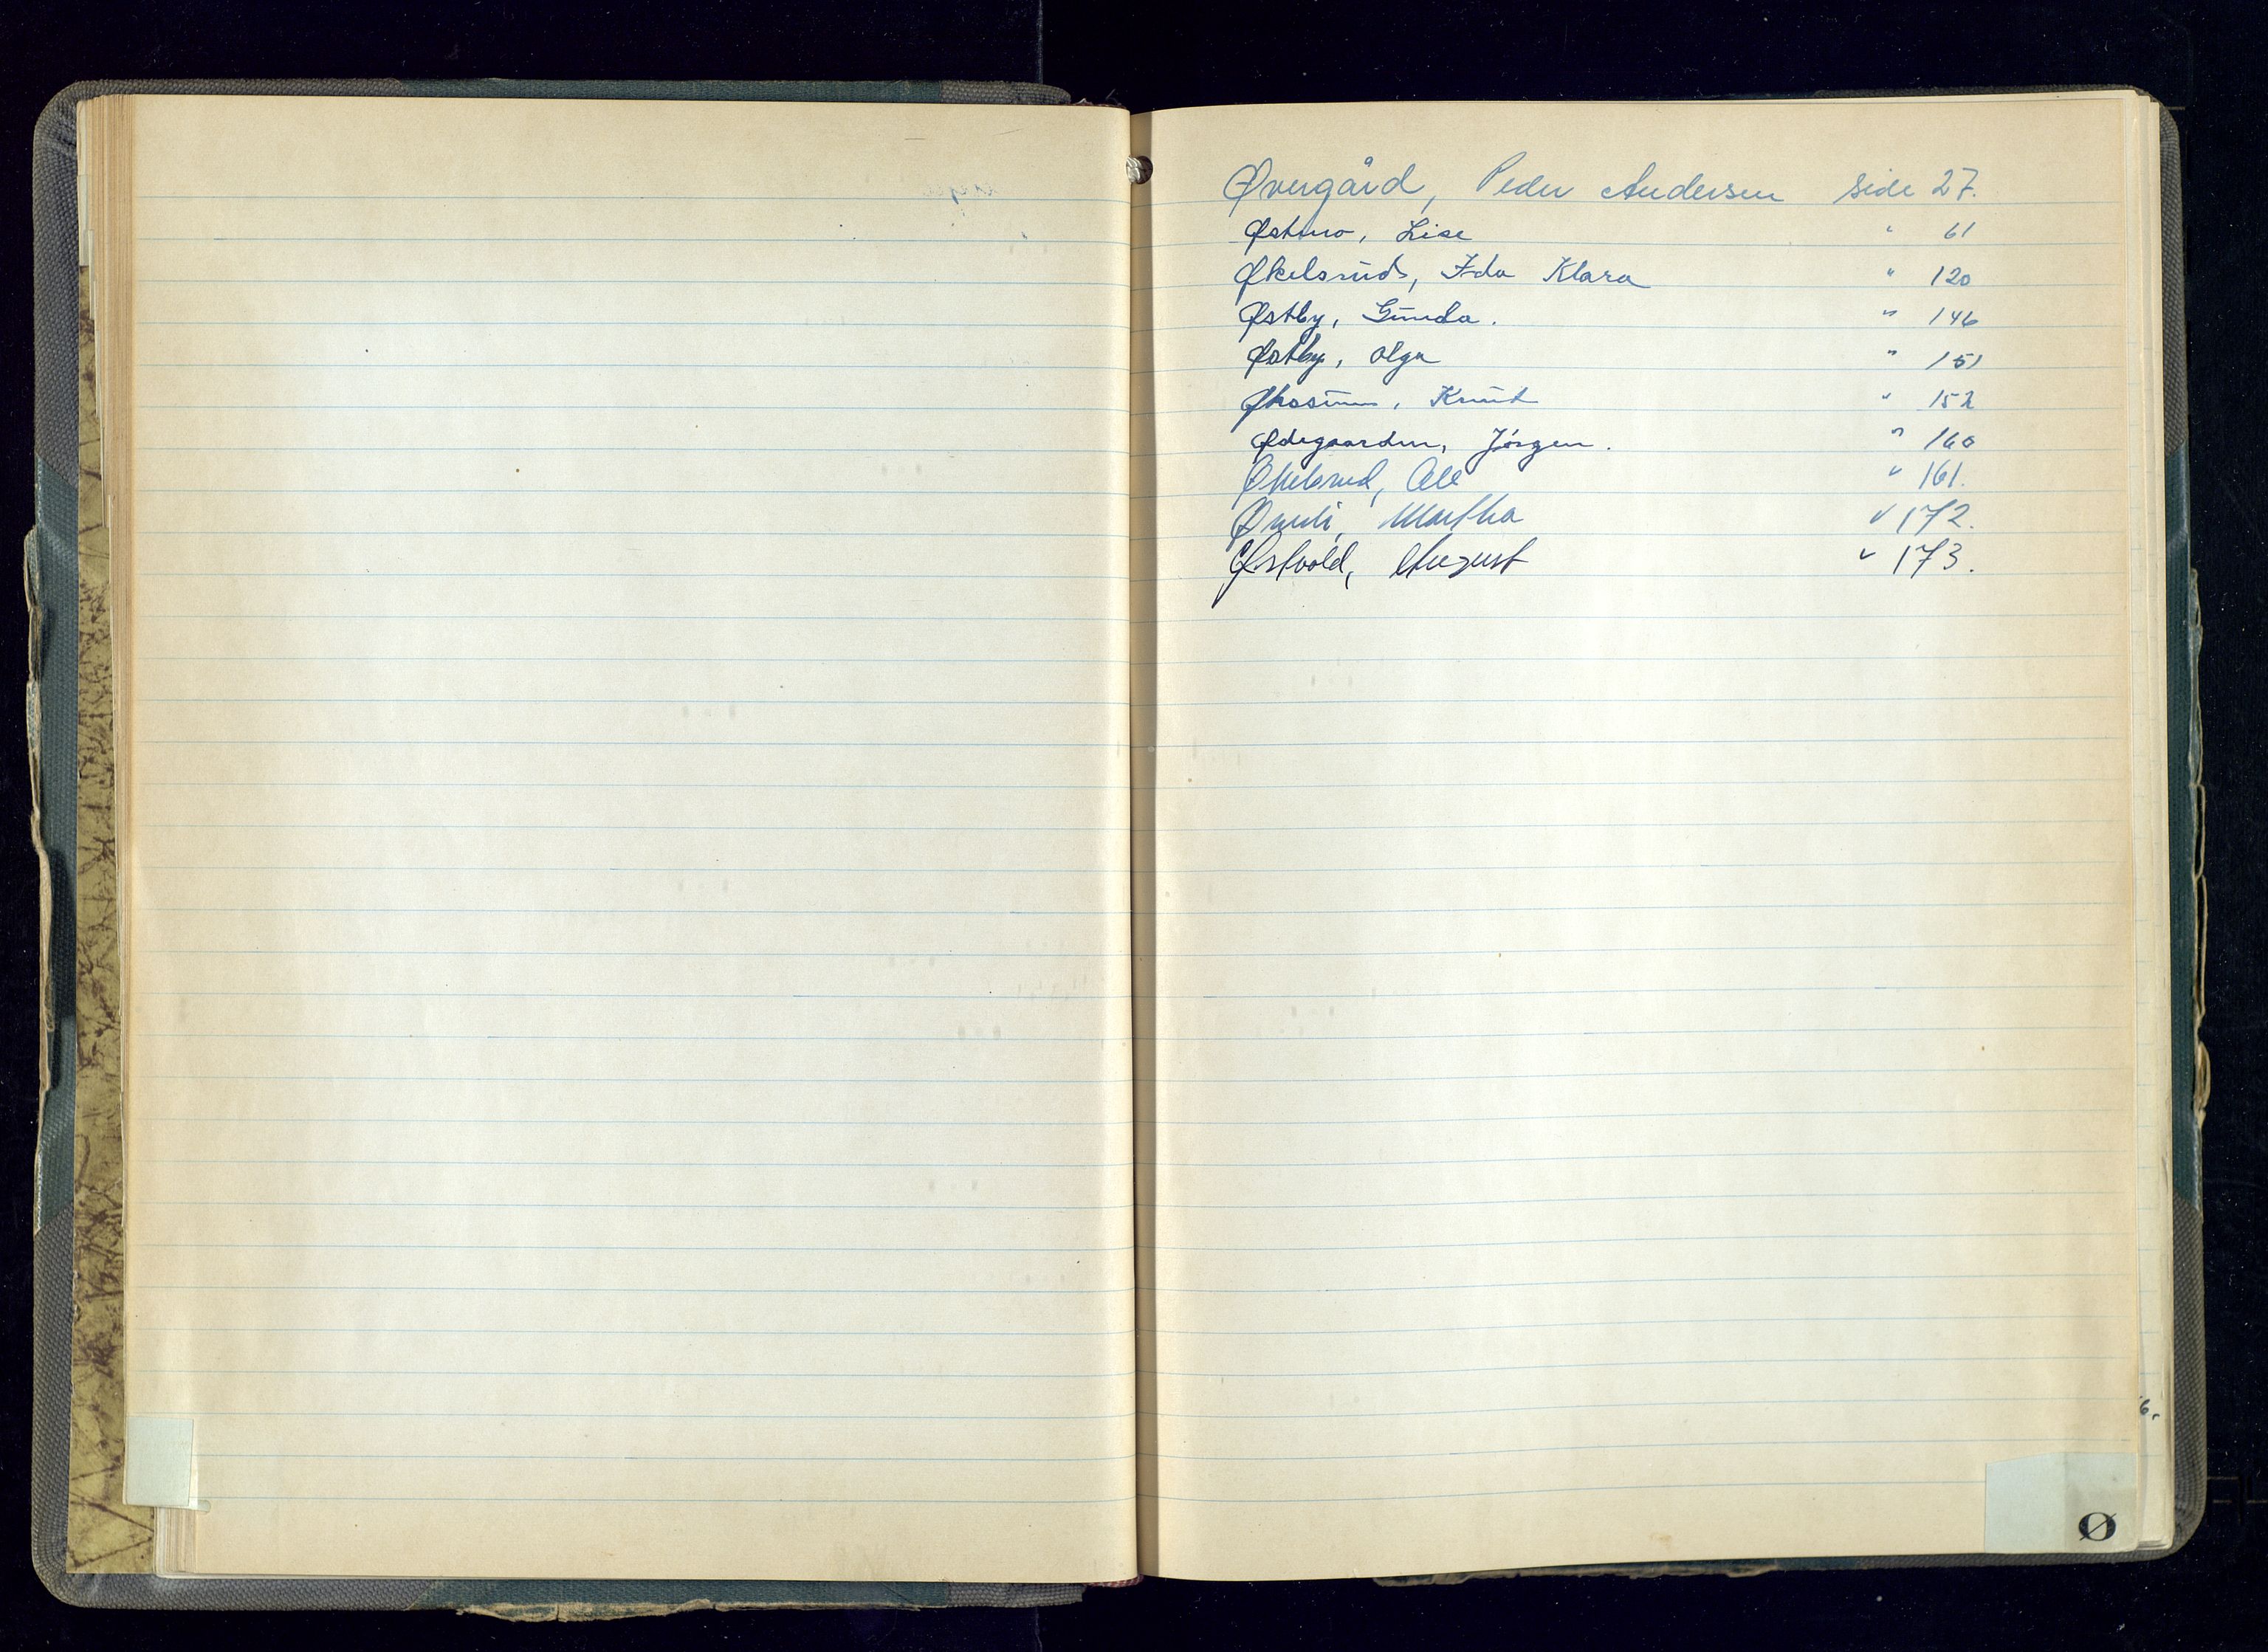 Øvergård, Peder Andersen side 27.
Østmo, Lise " 61
Økelsrud, Ida Klara " 120
Østby, Gunda. " 146
Østby, Olga " 151
Knut " 152
Ødegaarden, Jörgen. " 160
Økelsrud, " 161.
Martha " 172.
Østvold, August " 173.
6.
Ø